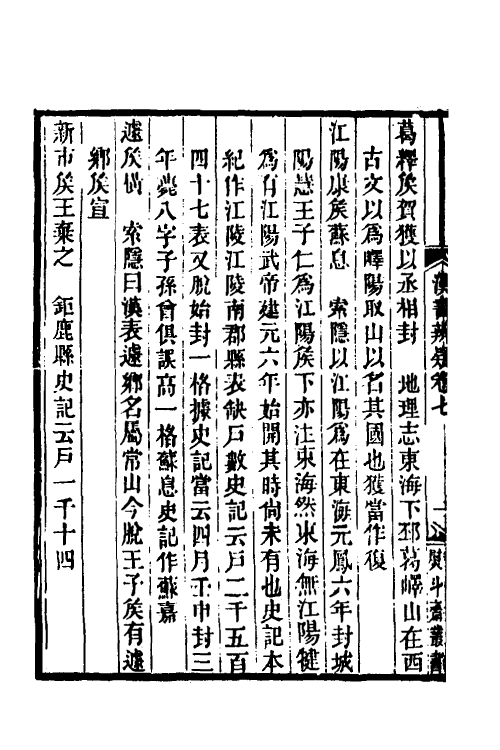 葛繹矦賀獲以丞相封　地理志東海下邳葛嶧山在西
古文以爲嶧陽取山以名其國也獲當作復
江陽康矦蘇息　索隱以江陽爲在東海元鳳六年封城
陽慧王子仁爲江陽矦下亦注東海然東海無江陽犍
爲有江陽武帝建元六年始開其時尙未有也史記本
紀作江陵江陵南郡縣表缺戸數史記云戸二千五百
四十七表又脫始封一格據史記當云四月壬申封三
年薨八字子孫曾俱誤高一格蘇息史記作蘇嘉
遽矦橫　索隱曰漢表遽鄉名屬常山今脫王子矦有遽
鄉矦宣
新市矦王棄之　鉅鹿縣史記云戸一千十四
漢書辨疑卷七
史學齋叢書